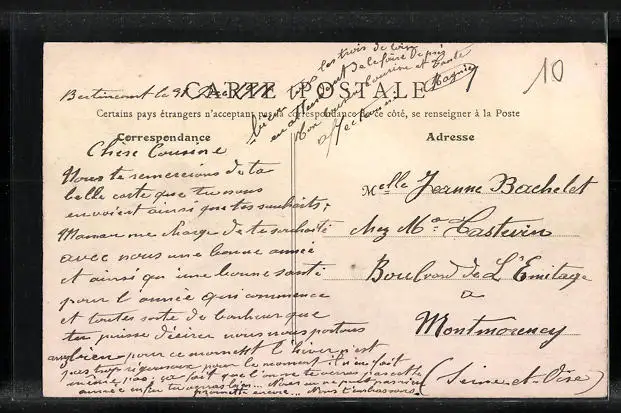 CARTE POSTALE
10
Certains pays étrangers n'acceptant pas la correspondance de ce côté, se renseigner à la Poste
Correspondance
Adresse
Bertincourt le
Chère Cousine
Nous te remercions de ta
belle carte que tu nous
envoient ainsi que tes souhaits.
Maman me charge de te souhaité
avec nous une bonne année
et ainsi qu'une bonne santé
pour l'année qui commence
et toutes sorte de bonheur que
tu puisse désirer nous nous portons
bien pour ce moment l'hiver n'est
pas trop rigoureux pour le moment
Nous t'embrassons
bien les trois de loin
en attendant de le faire de près
ton cousin cousine et tante
Melle Jeanne Bachelet
chez Me Hastevin
Boulvard de L'Emitage
a
Montmorency
(Seine-et-Oise)